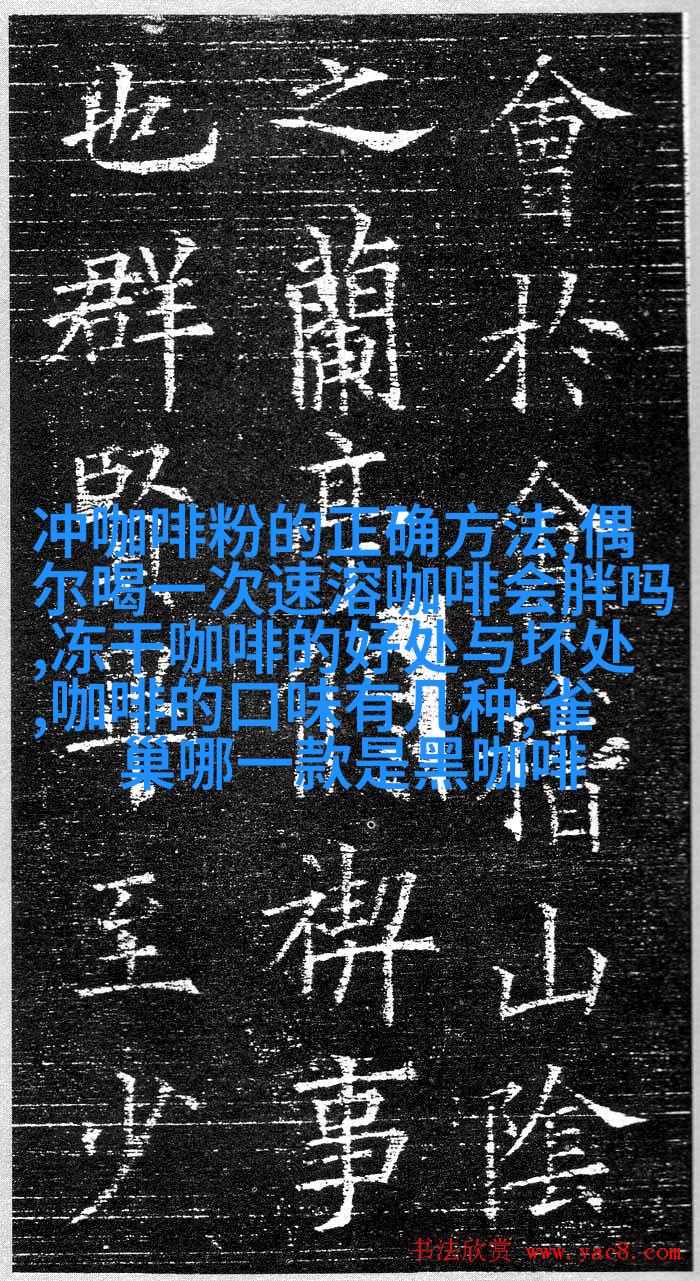 會於會稽山陰
之蘭亭禊事
也群賢畢至少
冲咖啡粉的正确方法,偶
尔喝一次速溶咖啡会胖吗
,冻干咖啡的好处与坏处
,咖啡的口味有几种,雀
巢哪一款是黑咖啡
书法欣赏 www.yac8.com